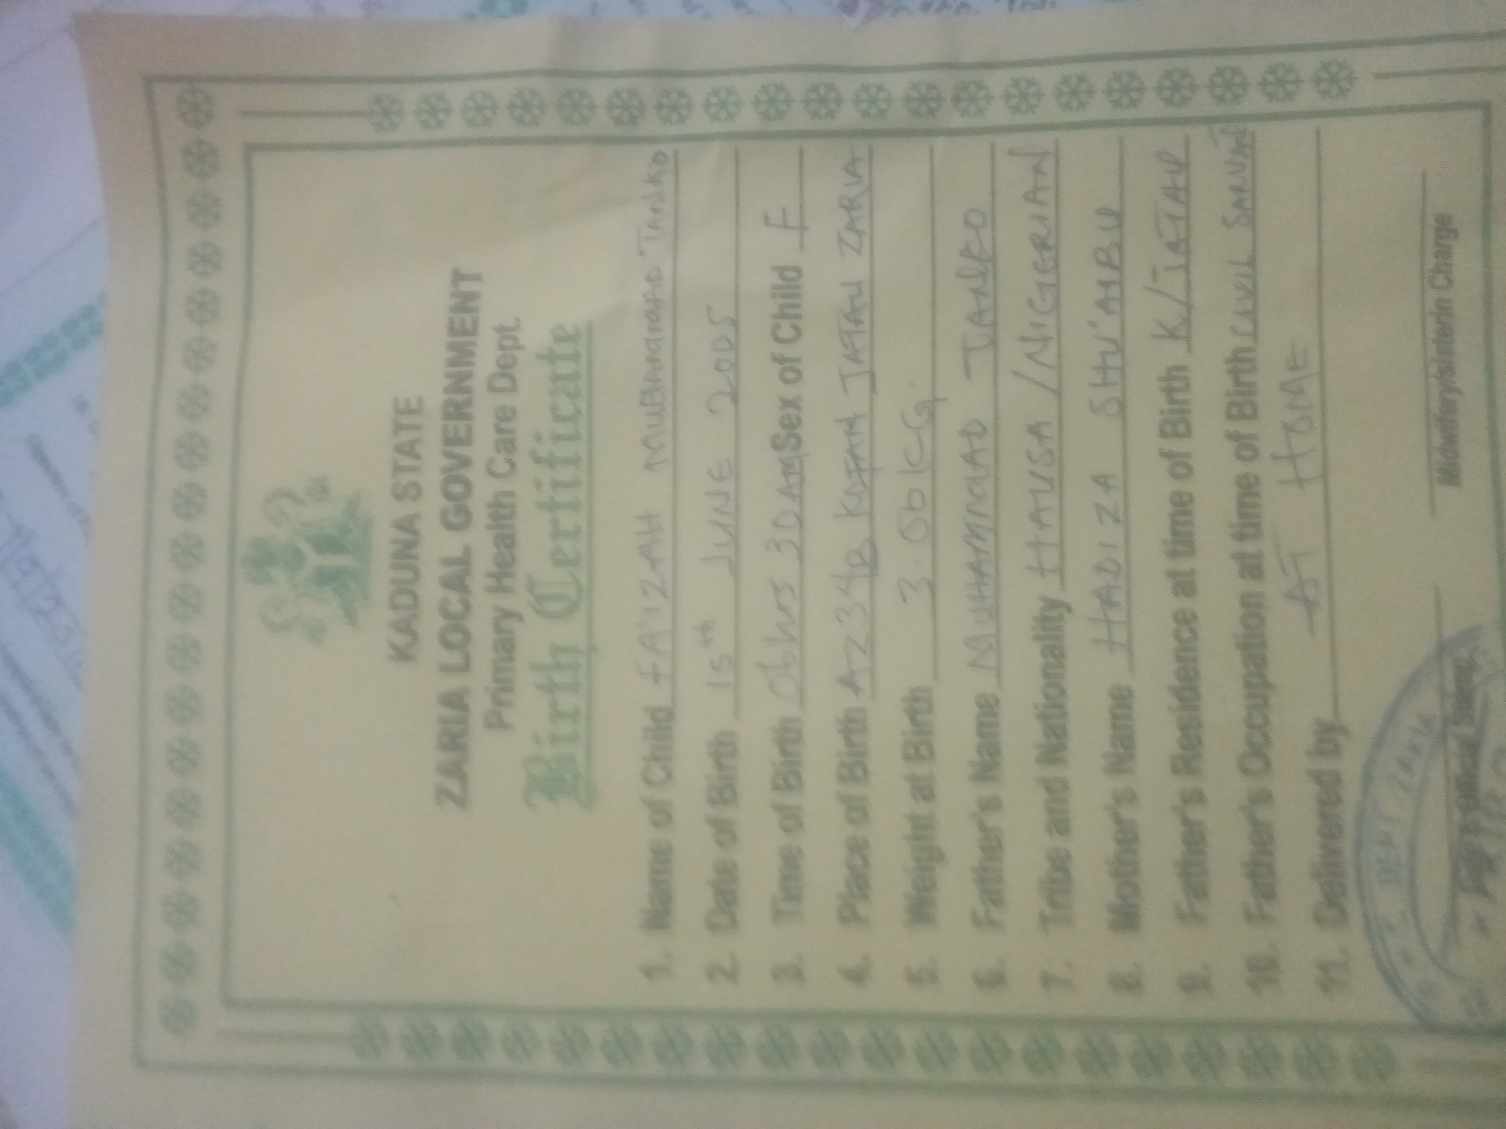 KADUNA STATE
ZARIA LOCAL GOVERNMENT
Primary Health Care Dept.
Birth Certificate
1. Name of Child FA'IZAH MUHAMMAD TANKO
2. Date of Birth 1st JUNE 2005
3. Time of Birth 06hrs 30AM Sex of Child F
4. Place of Birth KOFAR JATAU ZARIA
5. Weight at Birth 3.0 KG.
6. Father's Name MUHAMMAD TANKO
7. Tribe and Nationality HAUSA/NIGERIAN
8. Mother's Name HADIZA SHU'AIBU
9. Father's Residence at time of Birth K/JATAU
10. Father's Occupation at time of Birth CIVIL SARVANT
11. Delivered by AT HOME
Official Stamp
Midwifery/sisterin Charge